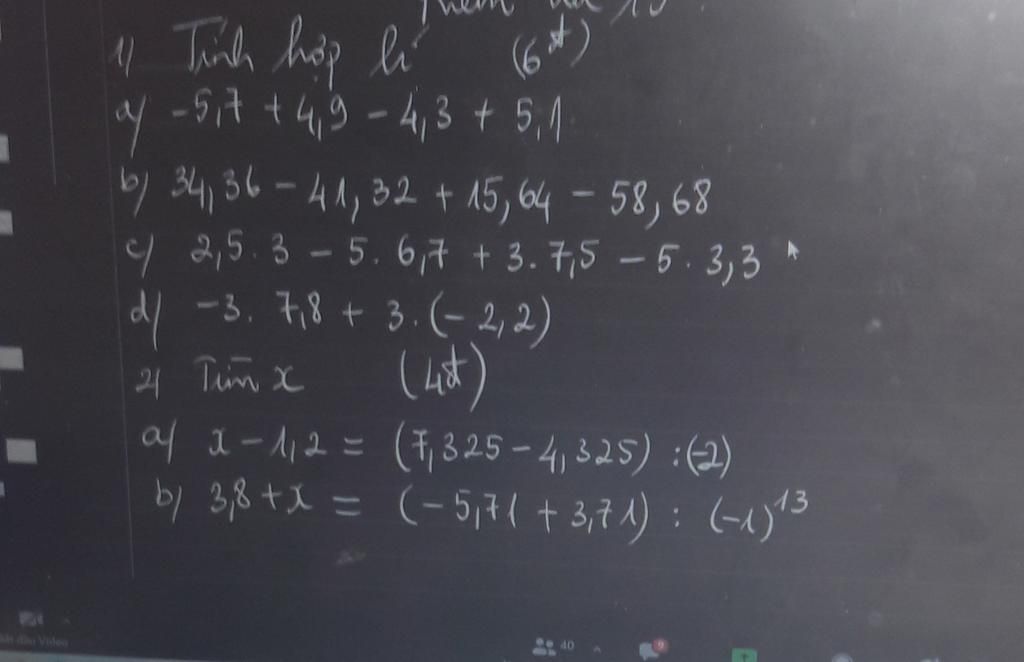 1) Tính hợp lí (6đ)
a) -5,7 + 4,9 - 4,3 + 5,1
b) 34,36 - 41,32 + 15,64 - 58,68
c) 2,5. 3 - 5. 6,7 + 3. 7,5 - 5. 3,3
d) -3. 7,8 + 3.(-2,2)
2) Tìm x (4đ)
a) x - 1,2 = (7,325 - 4,325) : (-2)
b) 3,8 + x = (-5,71 + 3,71) : (-1)¹³
40
9